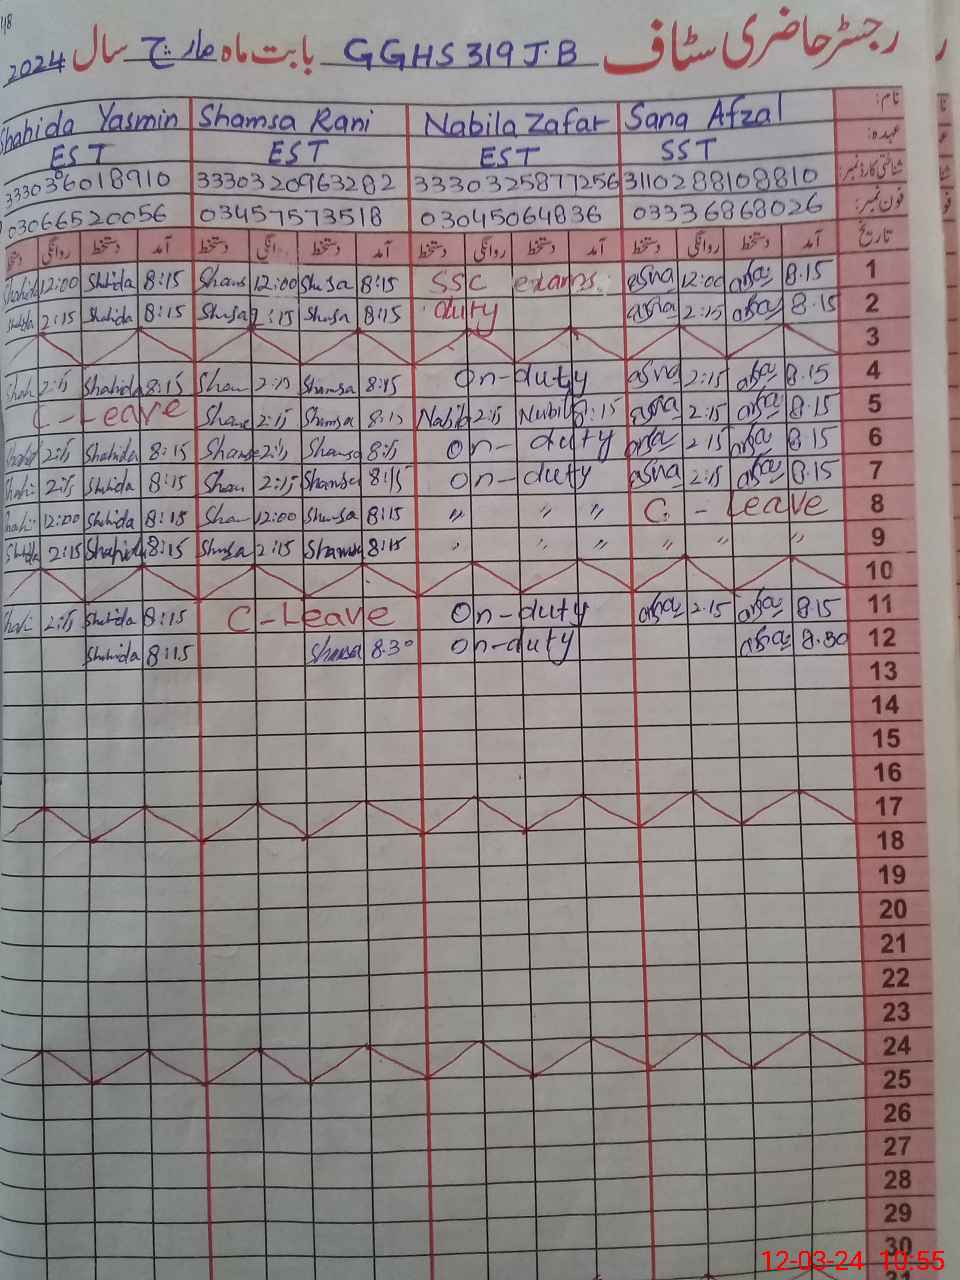 رجسٹر حاضری سٹاف GGHS 319 J.B بابت ماہ مارچ سال 2024
نام: Sana Afzal Nabila Zafar Shamsa Rani Shahida Yasmin
عہدہ: SST EST EST EST
شناختی کارڈ نمبر: 3110288108810 3330325877256 3330320963282 333036018910
فون نمبر: 03336868026 03045064836 03457573518 03066520056
تاریخ آمد دستخط روانگی دستخط آمد دستخط روانگی دستخط آمد دستخط روانگی دستخط آمد دستخط روانگی دستخط
1 8.15 12:00 SSC exams 8:15 Shamsa 12:00 Sham 8:15 Shahida 12:00 Shahida
2 8.15 2:15 duty 8:15 Shamsa 2:15 Shamsa 8:15 Shahida 2:15 Shahida
3
4 8.15 2:15 On-duty 8:15 Shamsa 2:15 Sham 8:15 Shahida 2:15 Shah
5 8.15 2:15 8:15 Nabila 2:15 Nabila 8:15 Shamsa 2:15 Sham C-Leave
6 8.15 2:15 On-duty 8:15 Shamsa 2:15 Shamsa 8:15 Shahida 2:15
7 8.15 2:15 On-duty 8:15 Shamsa 2:15 Sham 8:15 Shahida 2:15 Shahi
8 C. - Leave " " " 8:15 Shamsa 12:00 Sham 8:15 Shahida 12:00 Shahi
9 " " " " " " 8:15 Shamsa 2:15 Shamsa 8:15 Shahida 2:15 Shahida
10
11 8.15 2:15 On-duty C-Leave 8:15 Shahida 2:15 Shahi
12 8.30 On-duty 8.30 Shamsa 8:15 Shahida
13
14
15
16
17
18
19
20
21
22
23
24
25
26
27
28
29
30
12-03-24 10:55